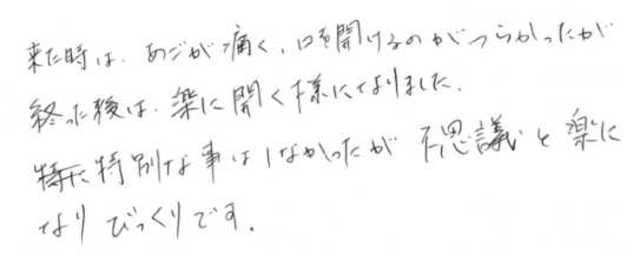 来た時は、あごが痛く、口を開けるのがつらかったが
終った後は、楽に開く様になりました。
特に特別な事はしなかったが不思議と楽に
なりびっくりです。